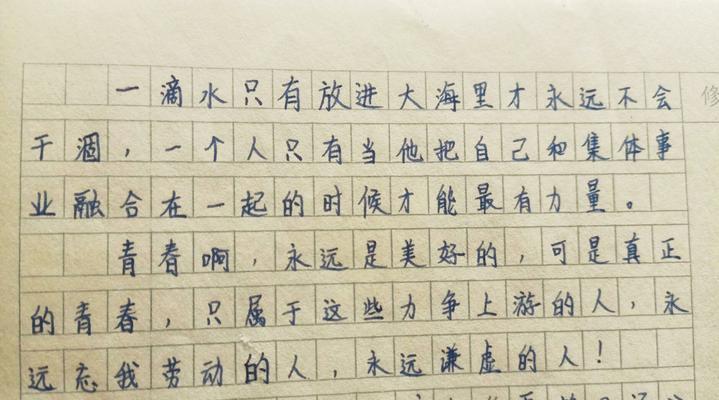 一滴水只有放进大海里才永远不会
干涸，一个人只有当他把自己和集体事
业融合在一起的时候才能最有力量。
青春啊，永远是美好的，可是真正
的青春，只属于这些力争上游的人，永
远忘我劳动的人，永远谦虚的人！
修